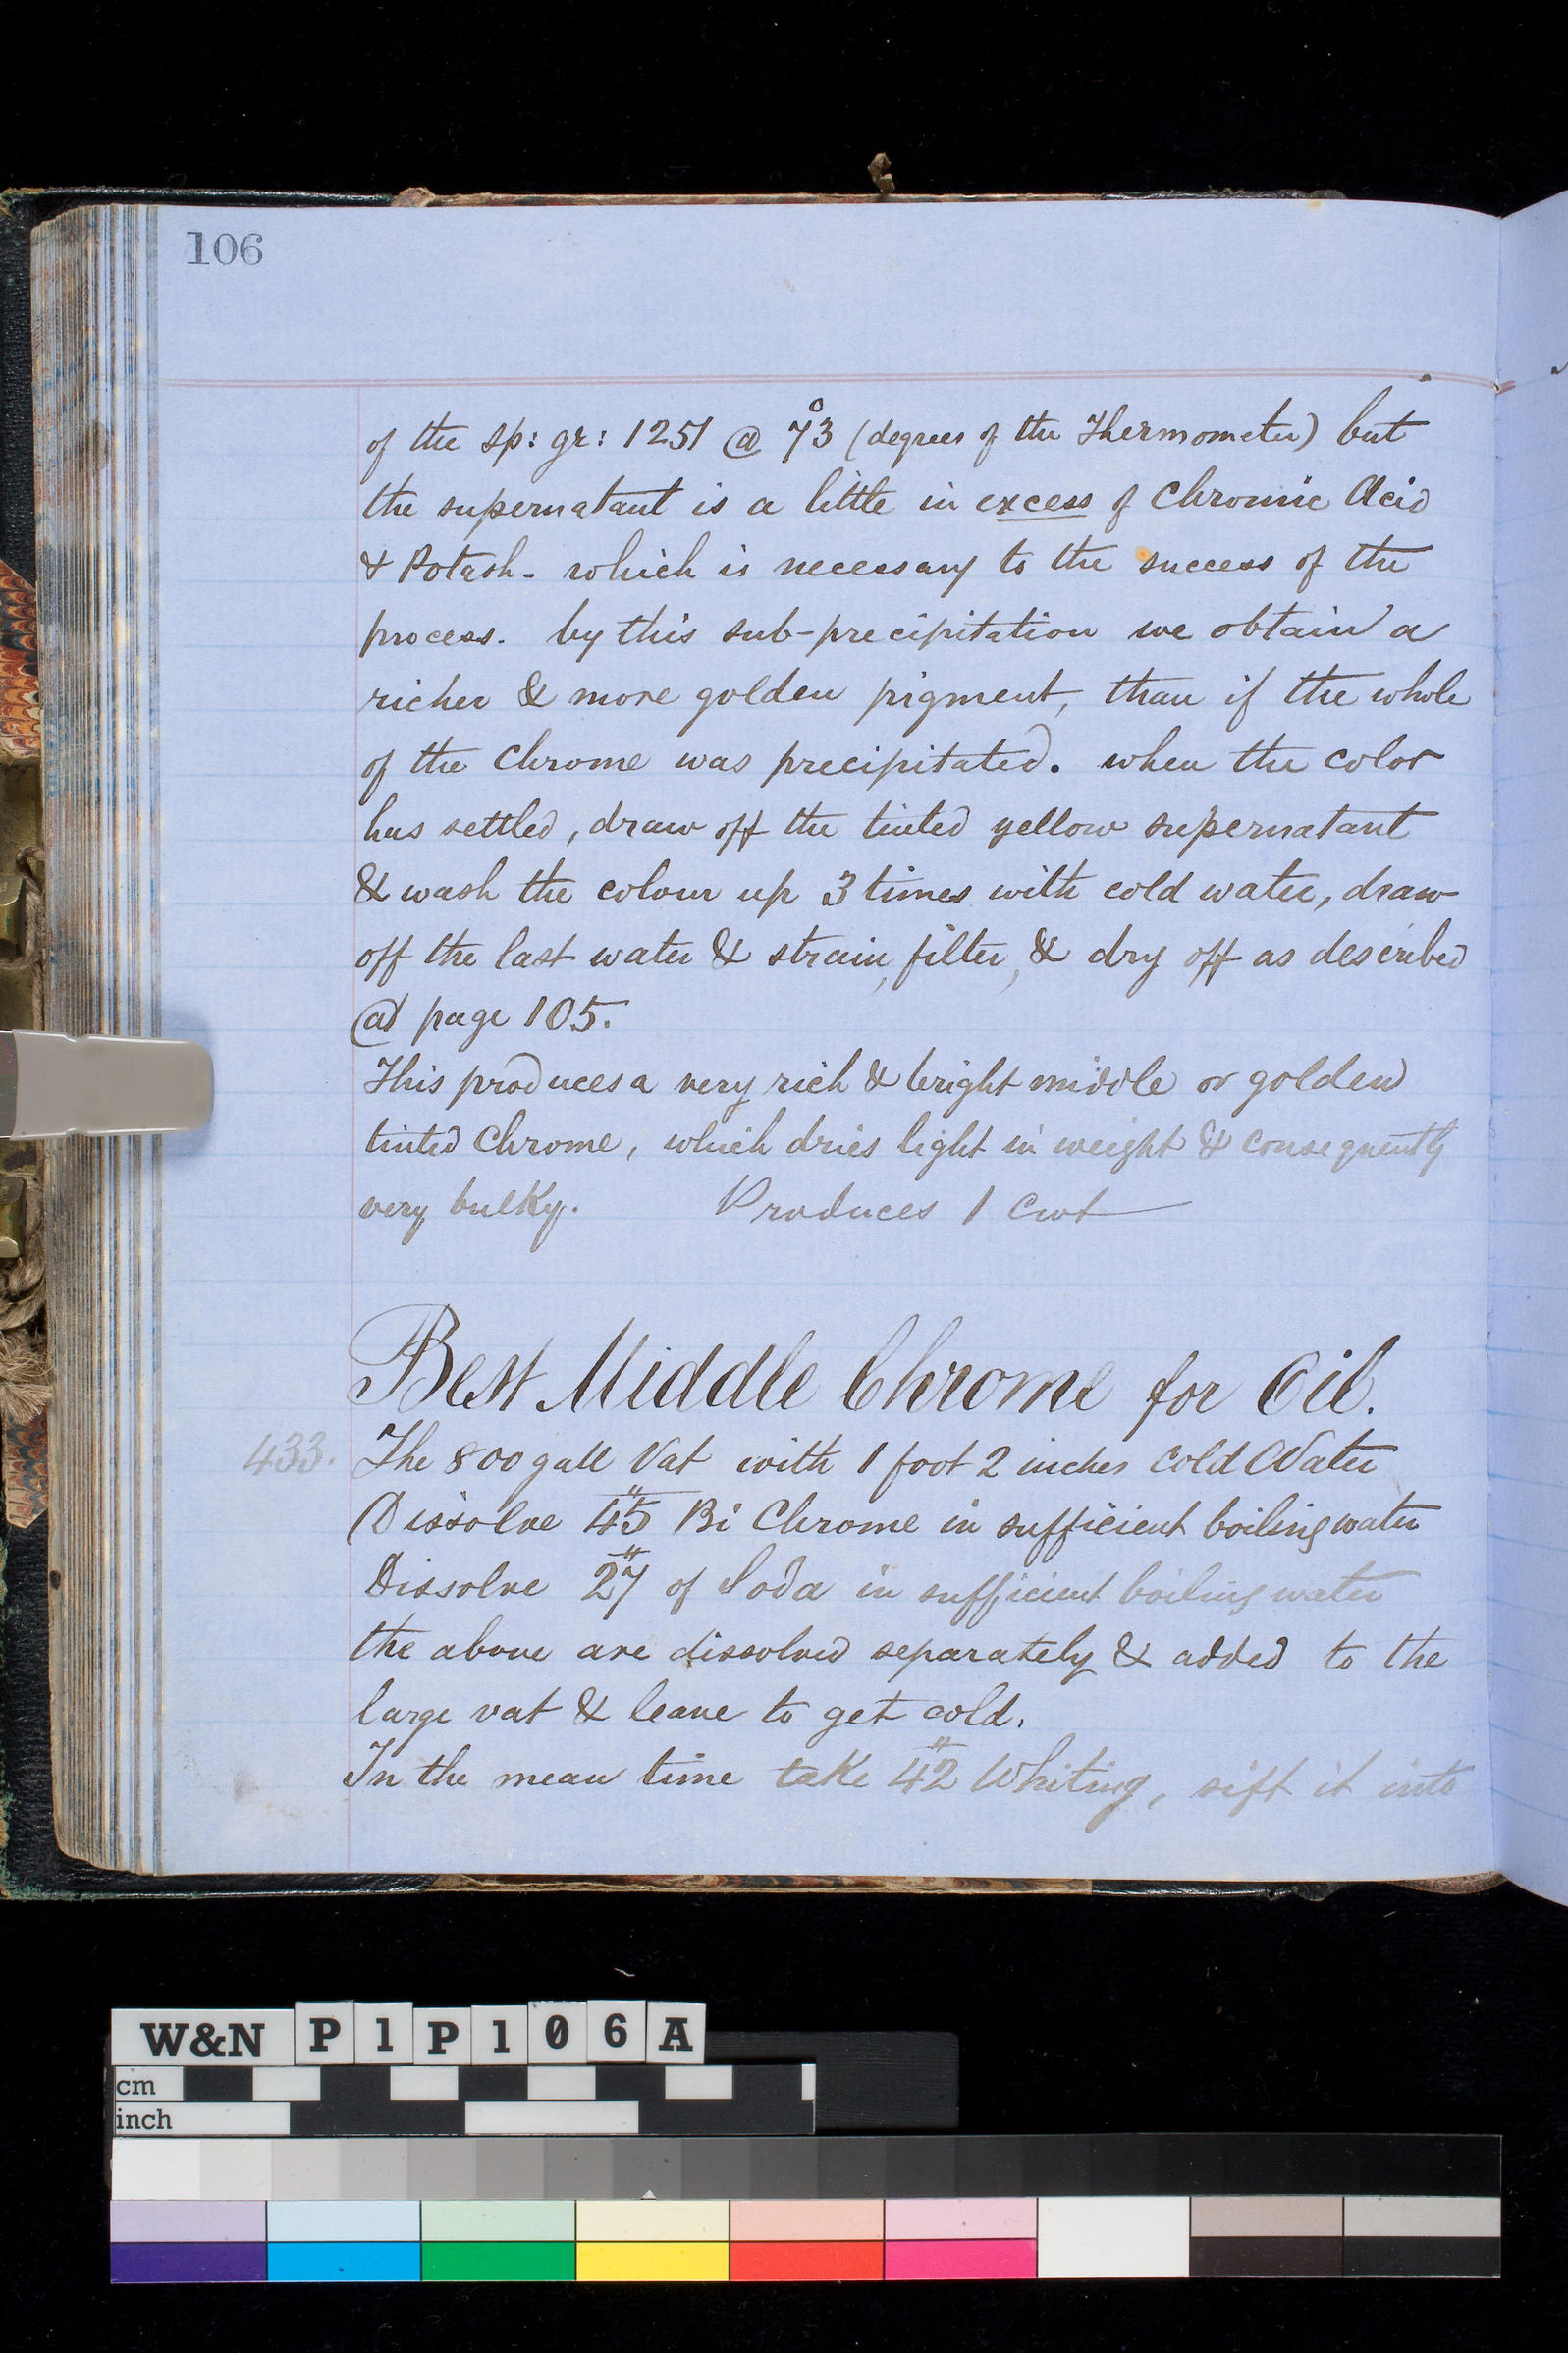 106
of the sp: gr: 1251 @ 73° (degrees of the Thermometer) but
the supernatant is a little in excess of Chromic Acid
& Potash - which is necessary to the success of the
process. by this sub-precipitation we obtain a
richer & more golden pigment, than if the whole
of the Chrome was precipitated. when the color
has settled, draw off the tinted yellow supernatant
& wash the colour up 3 times with cold water, draw
off the last water & strain, filter, & dry off as described
@ page 105.
This produces a very rich & bright middle or golden
tinted Chrome, which dries light in weight & consequently
very bulky. Produces 1 Cwt
Best Middle Chrome for Oil.
433. The 800 gall Vat with 1 foot 2 inches Cold Water
Dissolve 45# Bi Chrome in sufficient boiling water
Dissolve 27# of Soda in sufficient boiling water
the above are dissolved separately & added to the
large vat & leave to get cold.
In the mean time take 42# Whiting, sift it into
W&N P1P106A
cm
inch